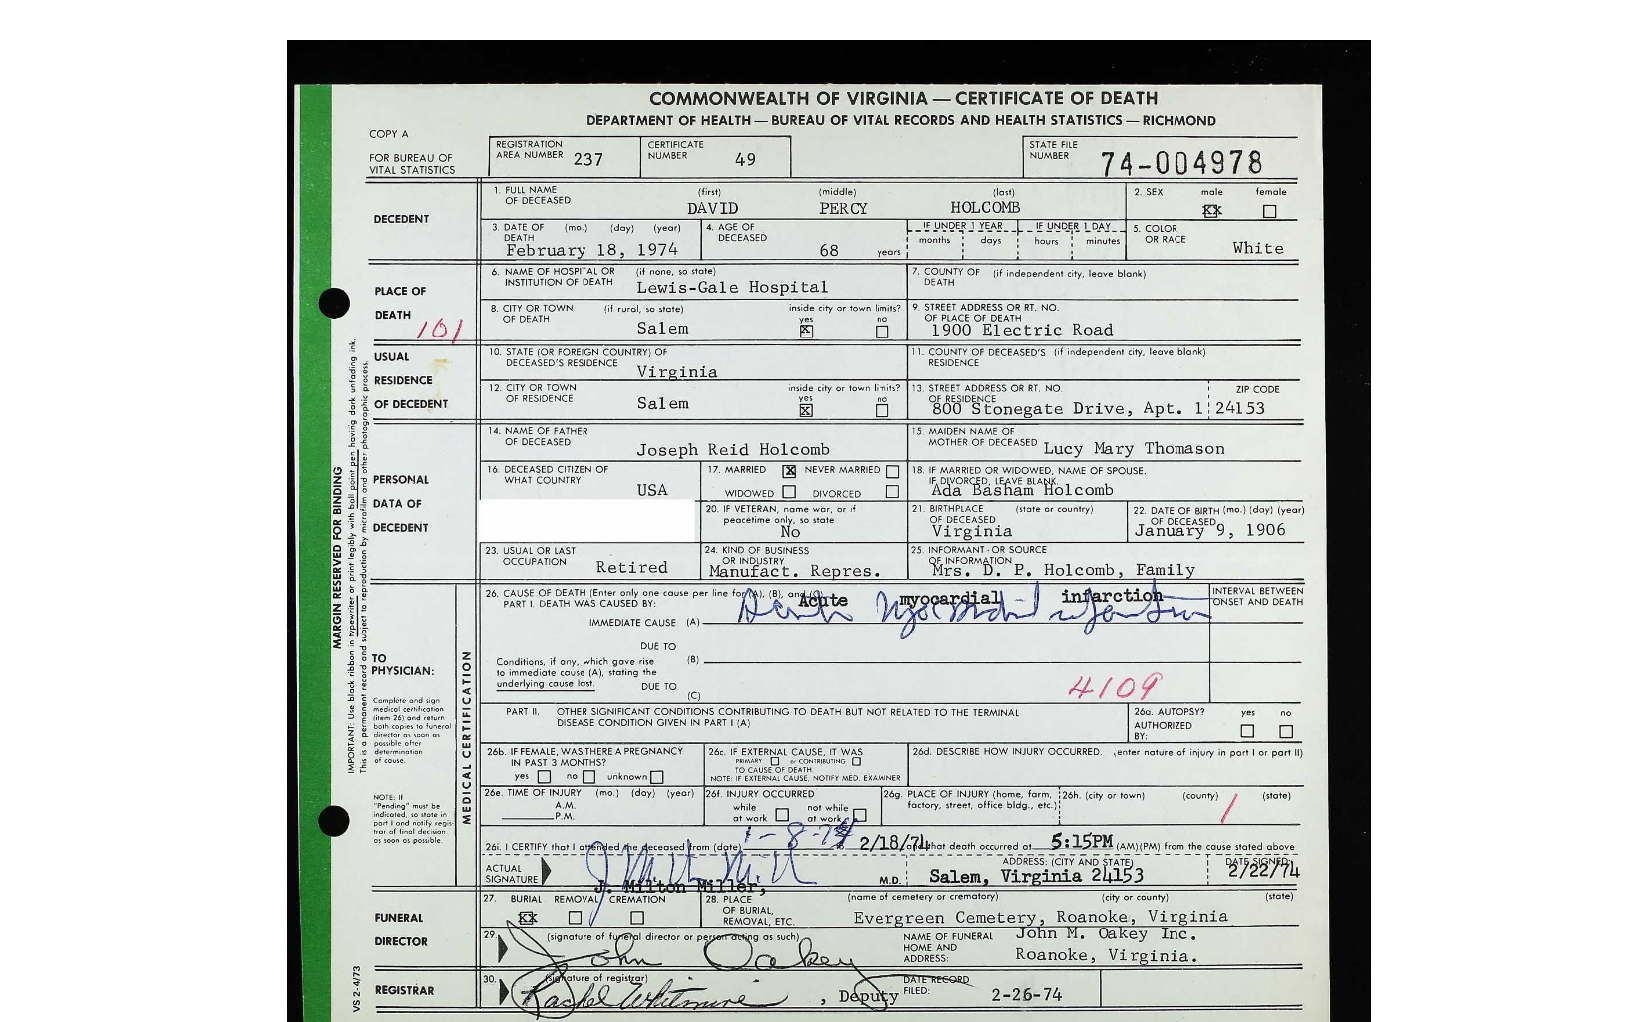 COMMONWEALTH OF VIRGINIA — CERTIFICATE OF DEATH
DEPARTMENT OF HEALTH — BUREAU OF VITAL RECORDS AND HEALTH STATISTICS — RICHMOND
COPY A
FOR BUREAU OF
VITAL STATISTICS
REGISTRATION
AREA NUMBER 237
CERTIFICATE
NUMBER 49
STATE FILE
NUMBER 74-004978
DECEDENT
1. FULL NAME OF DECEASED (first) (middle) (last)
DAVID PERCY HOLCOMB
2. SEX male female
XX
3. DATE OF DEATH (mo.) (day) (year)
February 18, 1974
4. AGE OF DECEASED
68 years
IF UNDER 1 YEAR IF UNDER 1 DAY
months days hours minutes
5. COLOR OR RACE
White
PLACE OF
DEATH
101
6. NAME OF HOSPITAL OR INSTITUTION OF DEATH (if none, so state)
Lewis-Gale Hospital
7. COUNTY OF DEATH (if independent city, leave blank)
8. CITY OR TOWN OF DEATH (if rural, so state)
Salem
inside city or town limits?
yes no
X
9. STREET ADDRESS OR RT. NO. OF PLACE OF DEATH
1900 Electric Road
USUAL
RESIDENCE
OF DECEDENT
10. STATE (OR FOREIGN COUNTRY) OF DECEASED'S RESIDENCE
Virginia
11. COUNTY OF DECEASED'S RESIDENCE (if independent city, leave blank)
12. CITY OR TOWN OF RESIDENCE
Salem
inside city or town limits?
yes no
X
13. STREET ADDRESS OR RT. NO. OF RESIDENCE ZIP CODE
800 Stonegate Drive, Apt. 1 24153
PERSONAL
DATA OF
DECEDENT
14. NAME OF FATHER OF DECEASED
Joseph Reid Holcomb
15. MAIDEN NAME OF MOTHER OF DECEASED
Lucy Mary Thomason
16. DECEASED CITIZEN OF WHAT COUNTRY
USA
17. MARRIED X NEVER MARRIED
WIDOWED DIVORCED
18. IF MARRIED OR WIDOWED, NAME OF SPOUSE. IF DIVORCED, LEAVE BLANK.
Ada Basham Holcomb
20. IF VETERAN, name war, or if peacetime only, so state
No
21. BIRTHPLACE OF DECEASED (state or country)
Virginia
22. DATE OF BIRTH OF DECEASED (mo.) (day) (year)
January 9, 1906
23. USUAL OR LAST OCCUPATION
Retired
24. KIND OF BUSINESS OR INDUSTRY
Manufact. Repres.
25. INFORMANT - OR SOURCE OF INFORMATION
Mrs. D. P. Holcomb, Family
MARGIN RESERVED FOR BINDING
IMPORTANT: Use black ribbon in typewriter or print legibly with ball point pen having dark unfading ink.
This is a permanent record and subject to reproduction by microfilm and other photographic process.
TO
PHYSICIAN:
Complete and sign
medical certification
(item 26) and return
both copies to funeral
director as soon as
possible after
determination
of cause.
NOTE: If
"Pending" must be
indicated, so state in
part I and notify regis-
trar of final decision
as soon as possible.
MEDICAL CERTIFICATION
26. CAUSE OF DEATH (Enter only one cause per line for (A), (B), and (C))
PART I. DEATH WAS CAUSED BY:
IMMEDIATE CAUSE (A)
Acute myocardial infarction
Acute Myocardial infarction
INTERVAL BETWEEN
ONSET AND DEATH
DUE TO
(B)
Conditions, if any, which gave rise
to immediate cause (A), stating the
underlying cause lost.
DUE TO
(C)
4109
PART II. OTHER SIGNIFICANT CONDITIONS CONTRIBUTING TO DEATH BUT NOT RELATED TO THE TERMINAL
DISEASE CONDITION GIVEN IN PART I (A)
26a. AUTOPSY? yes no
AUTHORIZED
BY:
26b. IF FEMALE, WAS THERE A PREGNANCY
IN PAST 3 MONTHS?
yes no unknown
26c. IF EXTERNAL CAUSE, IT WAS
PRIMARY or CONTRIBUTING
TO CAUSE OF DEATH
NOTE: IF EXTERNAL CAUSE, NOTIFY MED. EXAMINER
26d. DESCRIBE HOW INJURY OCCURRED. (enter nature of injury in part I or part II)
26e. TIME OF INJURY (mo.) (day) (year)
A.M.
P.M.
26f. INJURY OCCURRED
while at work not while at work
26g. PLACE OF INJURY (home, farm,
factory, street, office bldg., etc.)
26h. (city or town) (county) (state)
26i. I CERTIFY that I attended the deceased from (date) 2/18/74 and that death occurred at 5:15PM (AM)(PM) from the cause stated above
ACTUAL
SIGNATURE
J. Milton Miller, M.D.
ADDRESS: (CITY AND STATE)
Salem, Virginia 24153
DATE SIGNED:
2/22/74
FUNERAL
DIRECTOR
27. BURIAL REMOVAL CREMATION
XX
28. PLACE
OF BURIAL,
REMOVAL, ETC.
(name of cemetery or crematory) (city or county) (state)
Evergreen Cemetery, Roanoke, Virginia
29. (signature of funeral director or person acting as such)
John Oakey
NAME OF FUNERAL
HOME AND
ADDRESS:
John M. Oakey Inc.
Roanoke, Virginia.
REGISTRAR
30. (signature of registrar)
Rachel Whitmire, Deputy
DATE RECORD
FILED:
2-26-74
VS 2-4/73